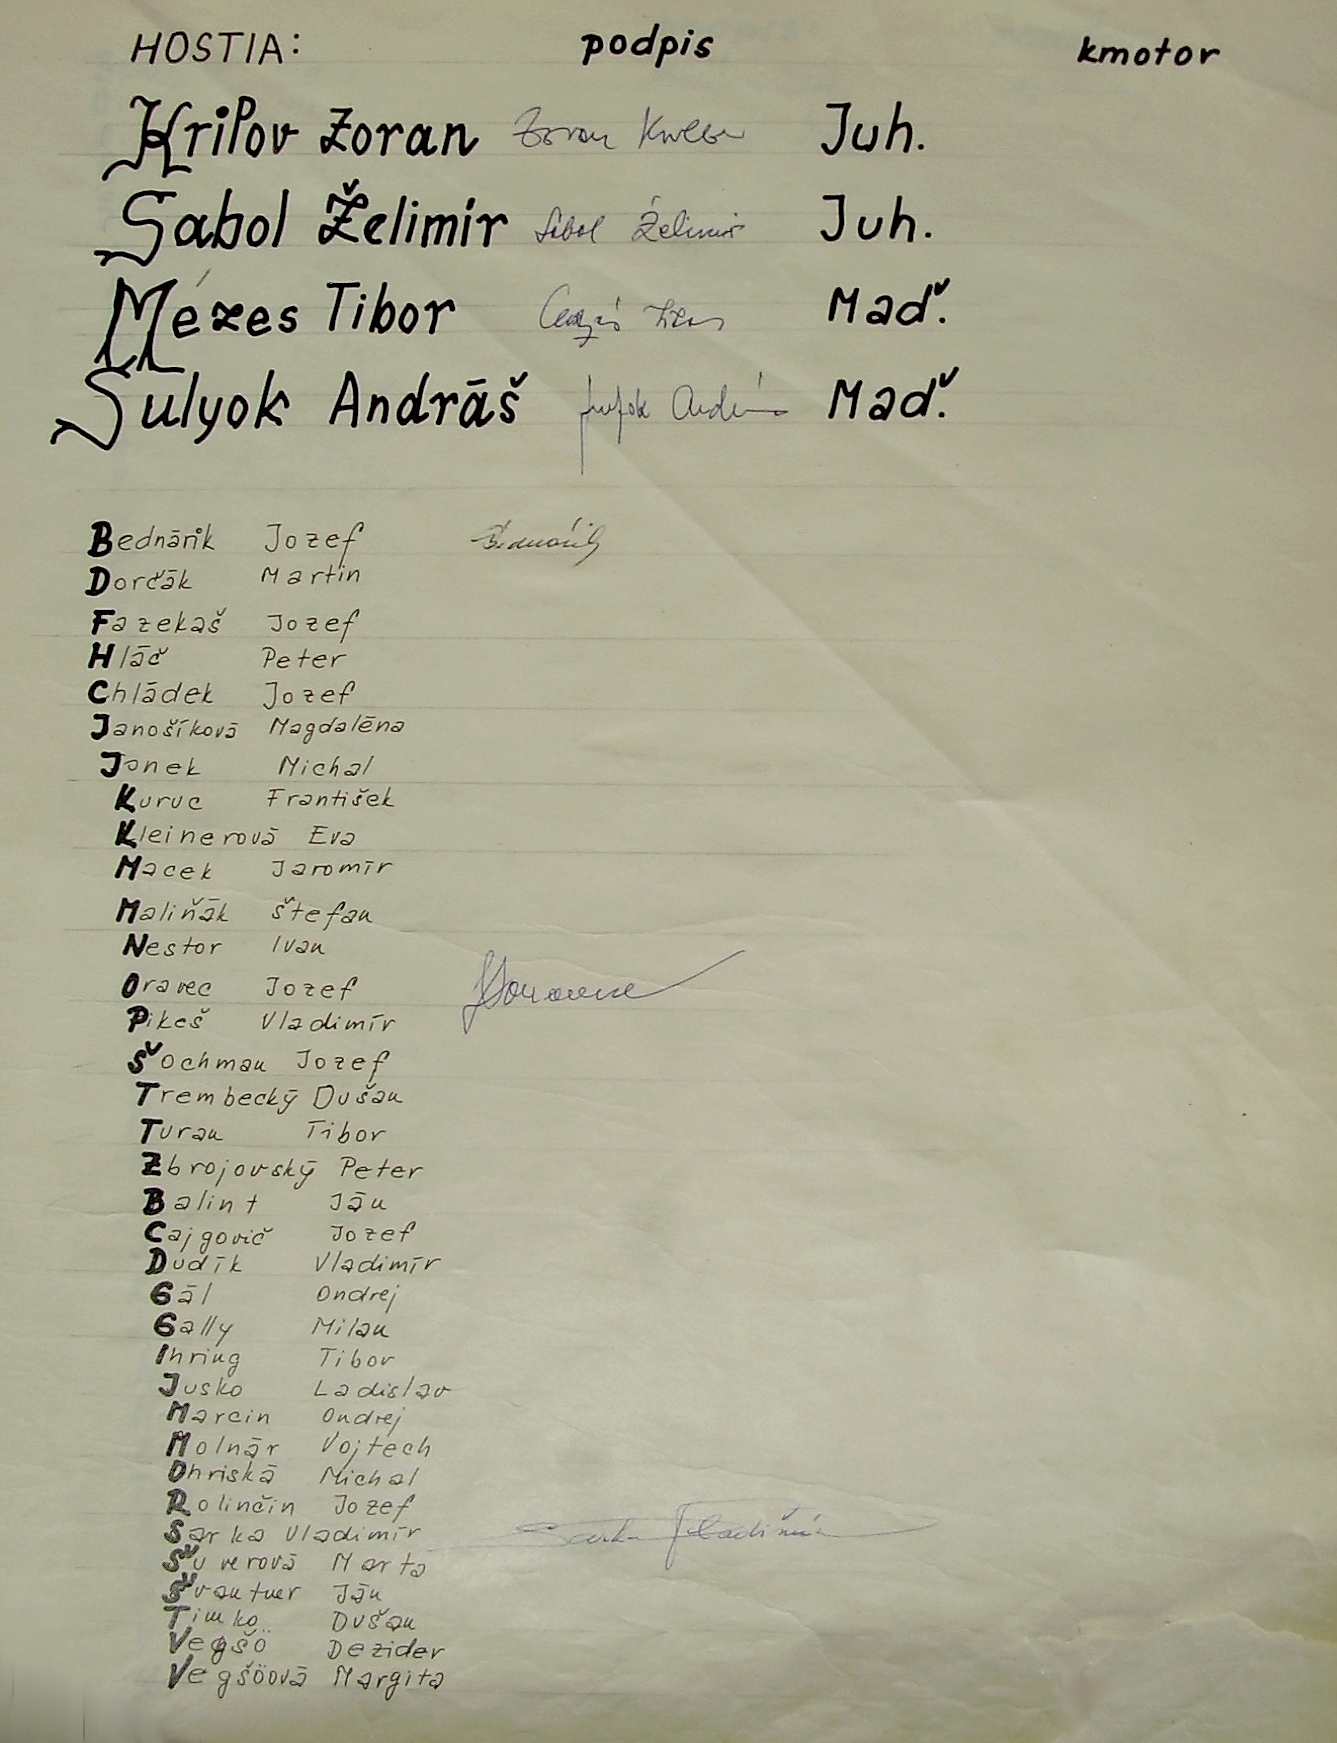 HOSTIA: podpis kmotor
Kripov Zoran Juh.
Sabol Želimír Sabol Želimir Juh.
Mézes Tibor Maď.
Sulyok Andráš Sulyok András Maď.
Bednárik Jozef Bednárik
Dorčák Martin
Fazekaš Jozef
Hláč Peter
Chládek Jozef
Janošíková Magdaléna
Jonek Michal
Kuruc František
Kleinerová Eva
Macek Jaromír
Maliňák Štefan
Nestor Ivan
Oravec Jozef
Pikeš Vladimír
Šochman Jozef
Trembecký Dušan
Turan Tibor
Zbrojovský Peter
Balint Ján
Cajgovič Jozef
Dudík Vladimír
Gál Ondrej
Gally Milan
Ihring Tibor
Jusko Ladislav
Marcin Ondrej
Molnár Vojtech
Ohriská Michal
Rolinčin Jozef
Sarka Vladimír Sarka Vladimír
Šuverová Marta
Švantner Ján
Timko Dušan
Vegšö Dezider
Vegšöová Margita